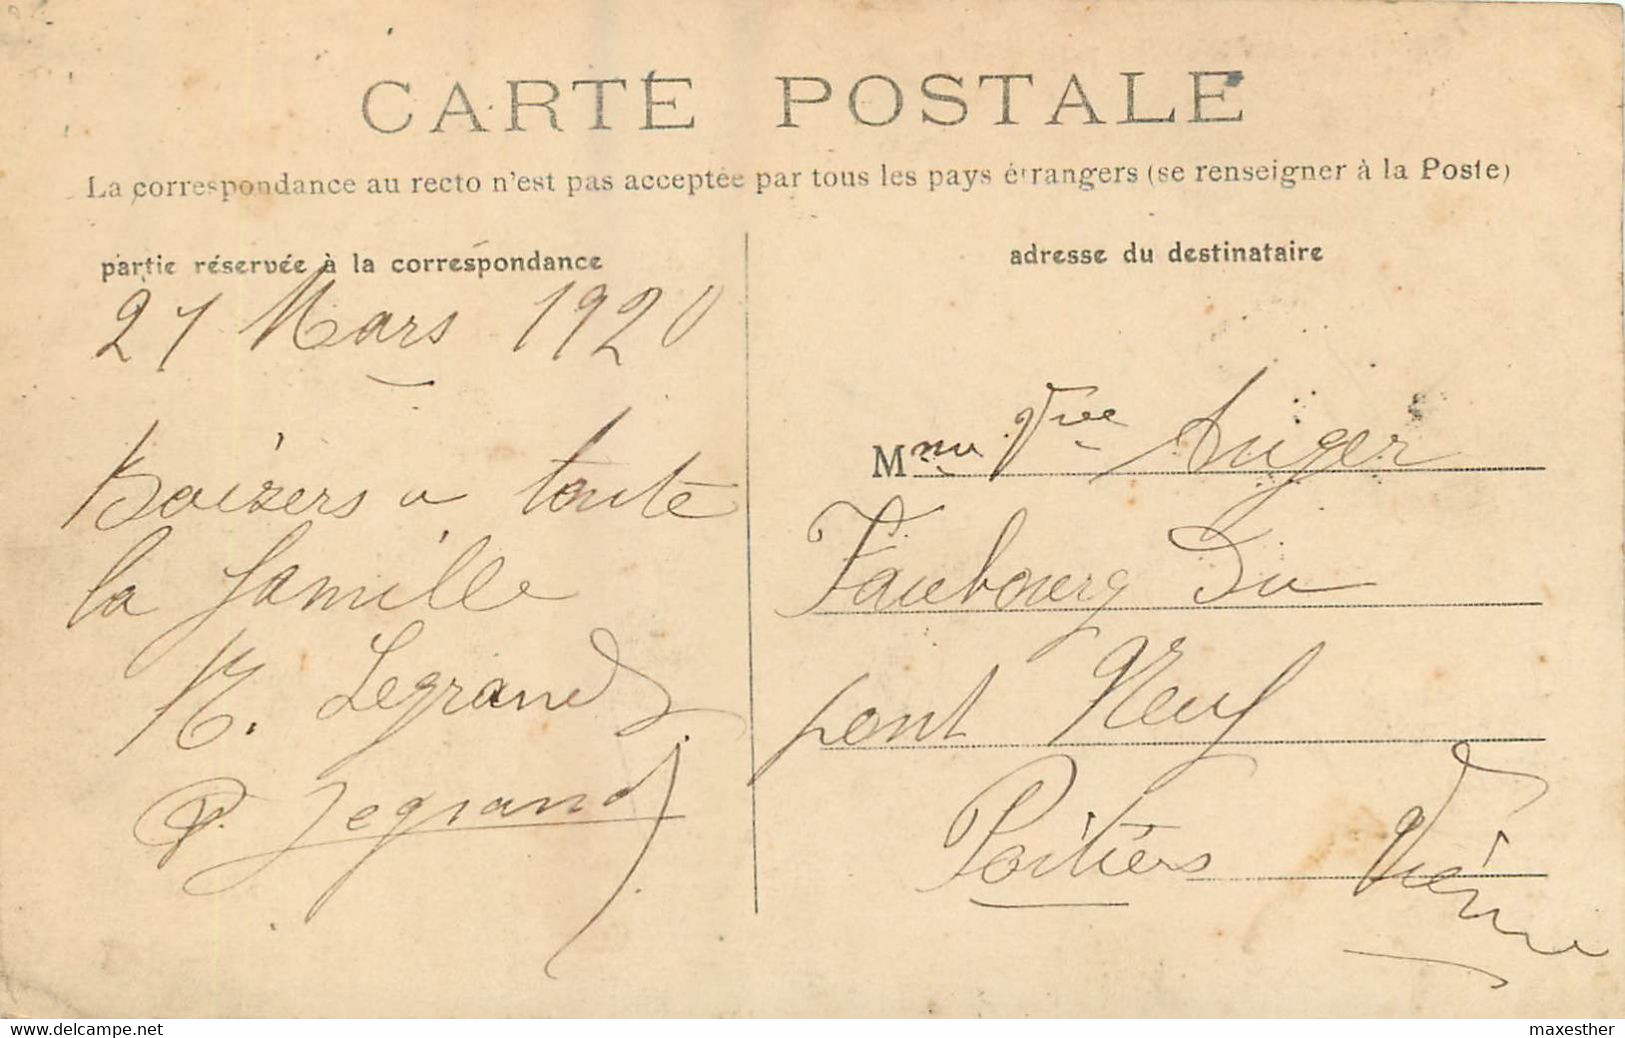 CARTE POSTALE
La correspondance au recto n'est pas acceptée par tous les pays étrangers (se renseigner à la Poste)
partie réservée à la correspondance
21 Mars 1920
Baizers a toute
la famille
Legrand
P. Legrand
adresse du destinataire
Mme Vve Auger
Faubourg Du
pont Neuf
Poitiers Viénne
www.delcampe.net
maxesther